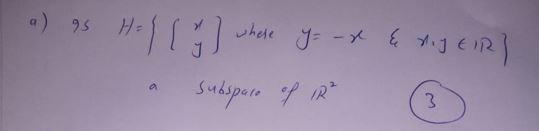 a) gs H = { [ x y ] where y = -x & x, y ∈ IR }
a subspace of IR²
3